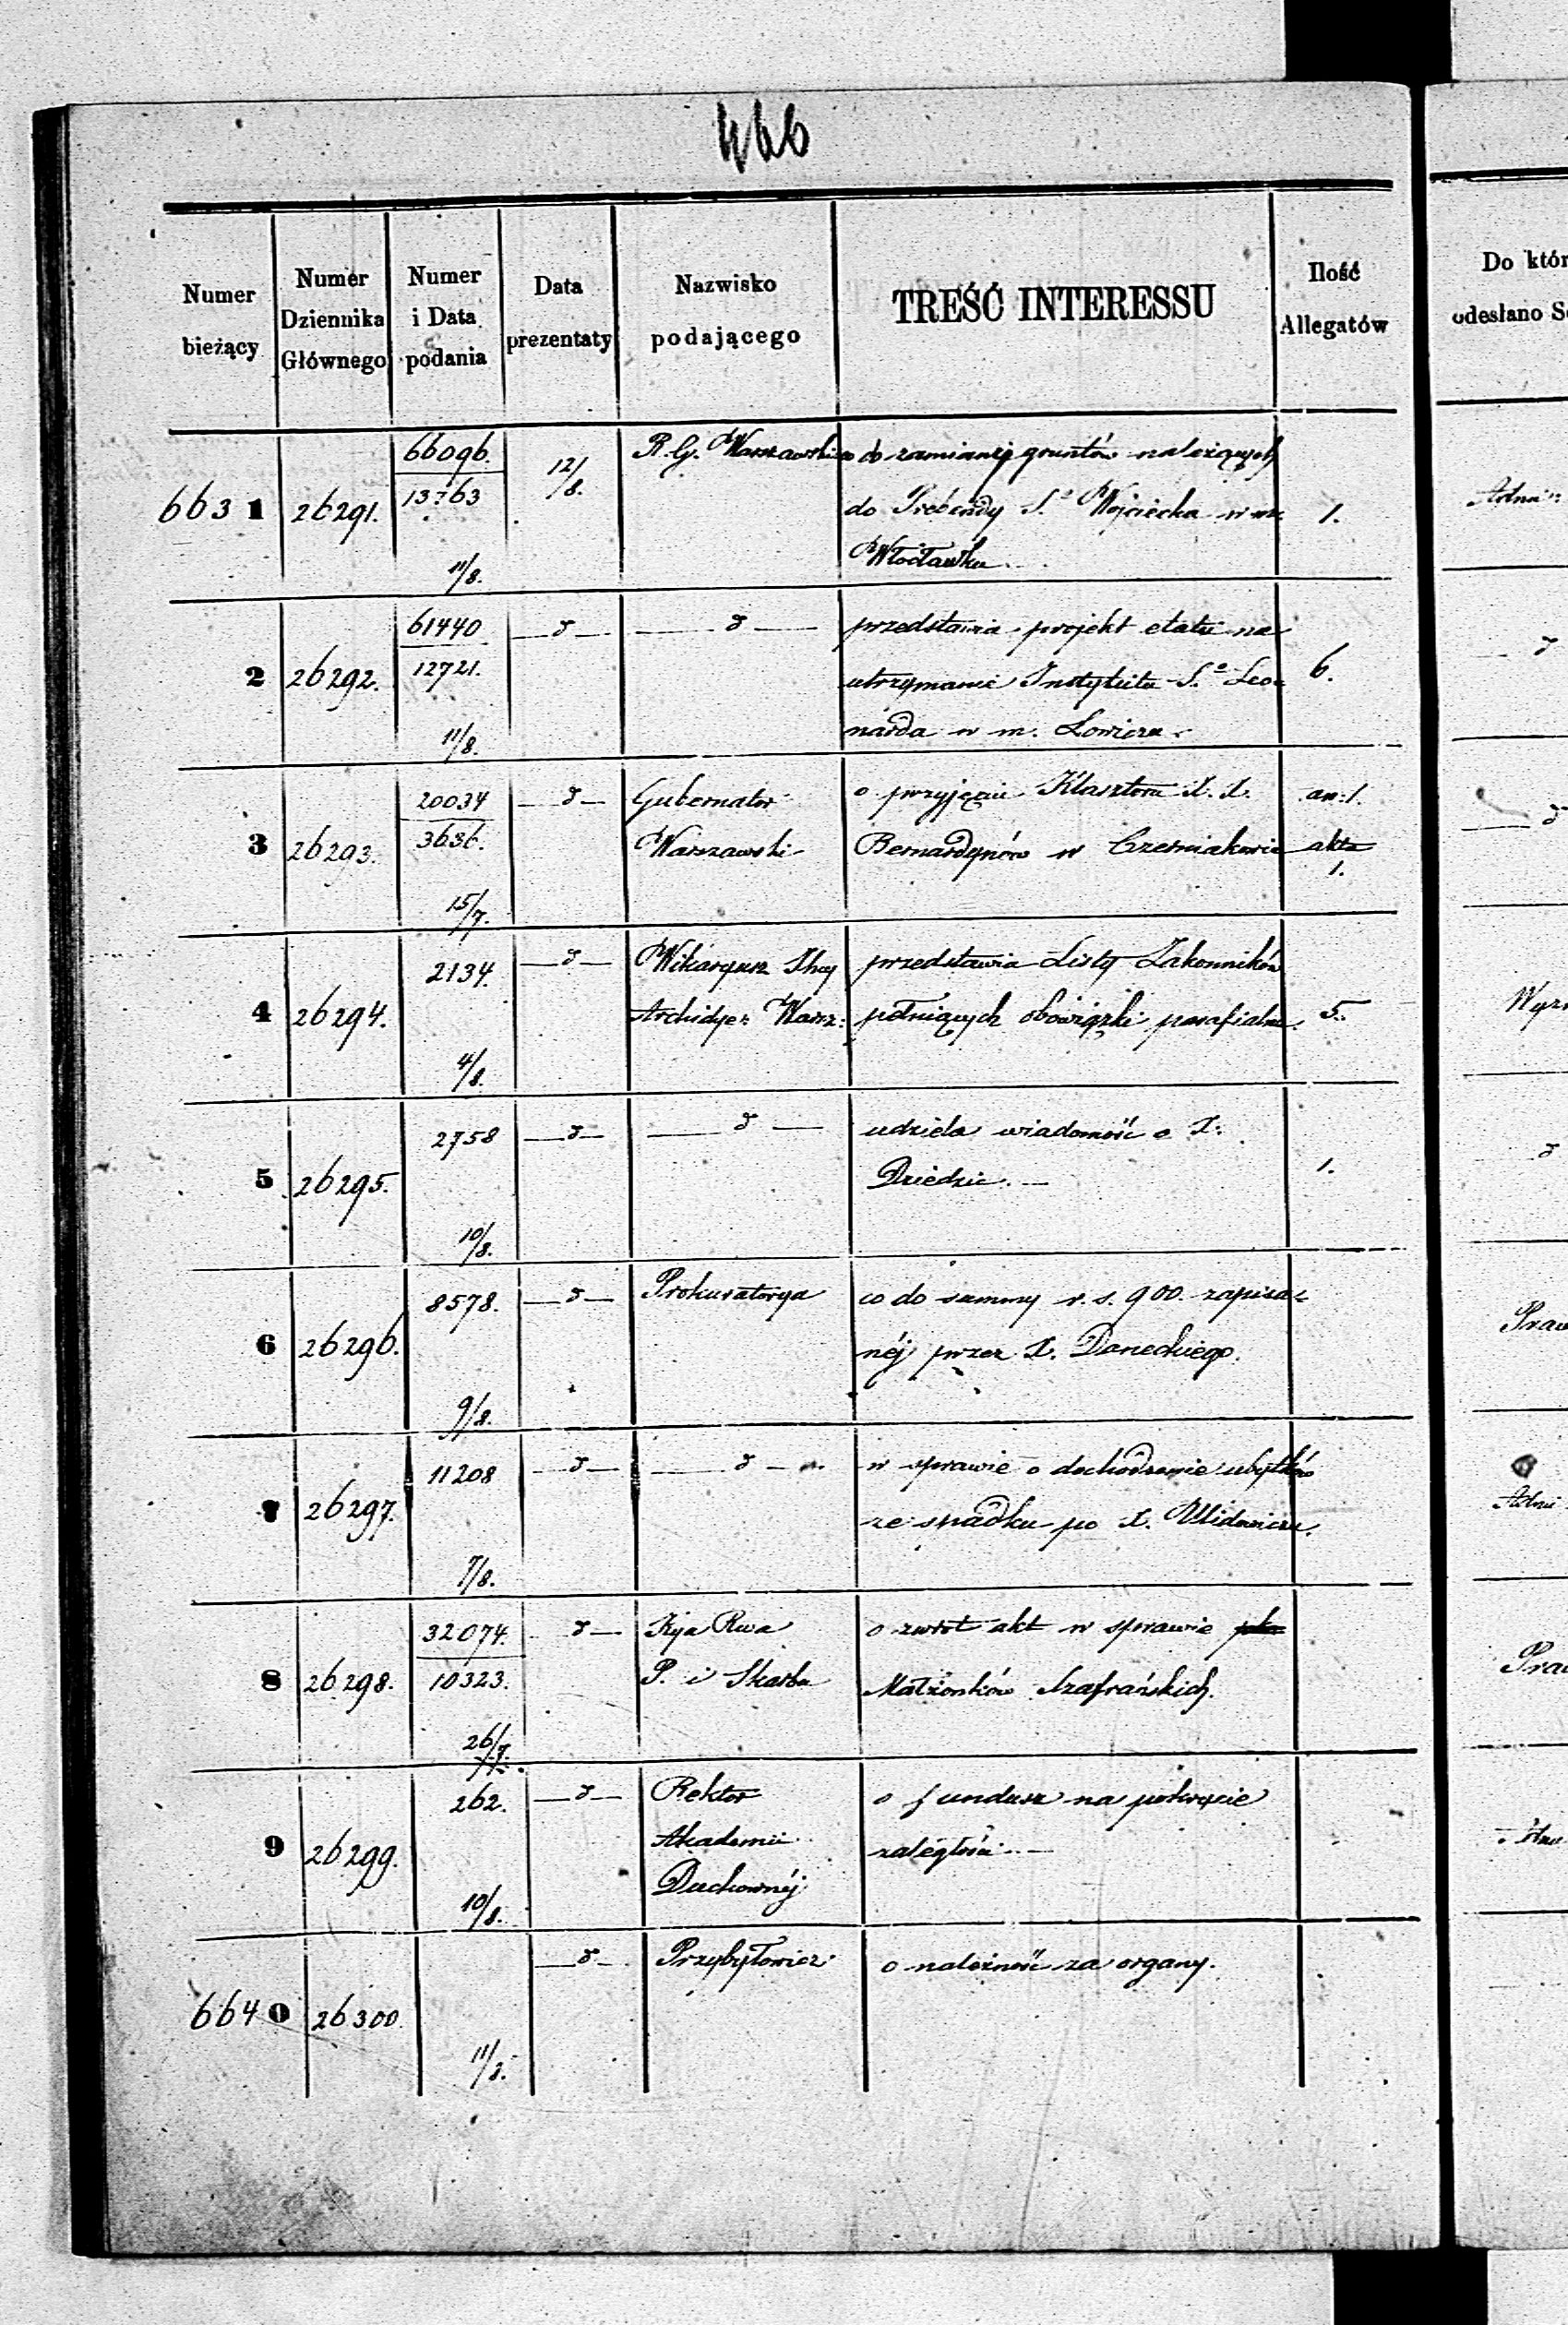 466
Numer bieżący
Numer Dziennika Głównego
Numer i Data podania
Data prezentaty
Nazwisko podającego
TREŚĆ INTERESSU
Ilość Allegatów
Do któr
odesłano S
6631 26291. 66096. 13763 11/8. 12/8. R. G. Warszawski co do zamiany gruntów należących
do Prebendy S.o Wojciecha w m. 1.
Włocławku.
2 26292. 61440 12721. 11/8. d d przedstawia projekt etatu na
utrzymanie Instytutu S.o Leo- 6.
narda w m. Łowiczu. d
3 26293. 20034 3636. 15/7. d Gubernator o przyjęciu Klasztoru X. X. an: 1.
Warszawski Bernardynów w Czerniakowie akta 1. d
4 26294. 2134. 4/8. d Wikaryusz Jlny przedstawia Listy Zakonników
Archidyec: Warsz: pełniących obowiązki parafialne. 5.
5 26295. 2758 10/8. d d udziela wiadomość o X.
Dziedzic. 1. d
6 26296. 8578. 9/8. d Prokuratorya co do summy r. s. 900. zapisa-
nej przez X. Daneckiego. Praw
7 26297. 11208 7/8. d d w sprawie o dochodzenie ubytków
ze spadku po X.
8 26298. 32074. 10323. 26/7. d Kja Rwa o zwrot akt w sprawie
P. i Skarbu Małżonków Szafrańskich. Praw
9 26299. 262. 10/8. d Rektor o fundusz na pokrycie
Akademii zaległości
Duchownéj
6640 26300. 11/8. d Przybyłowicz o należność za organy.